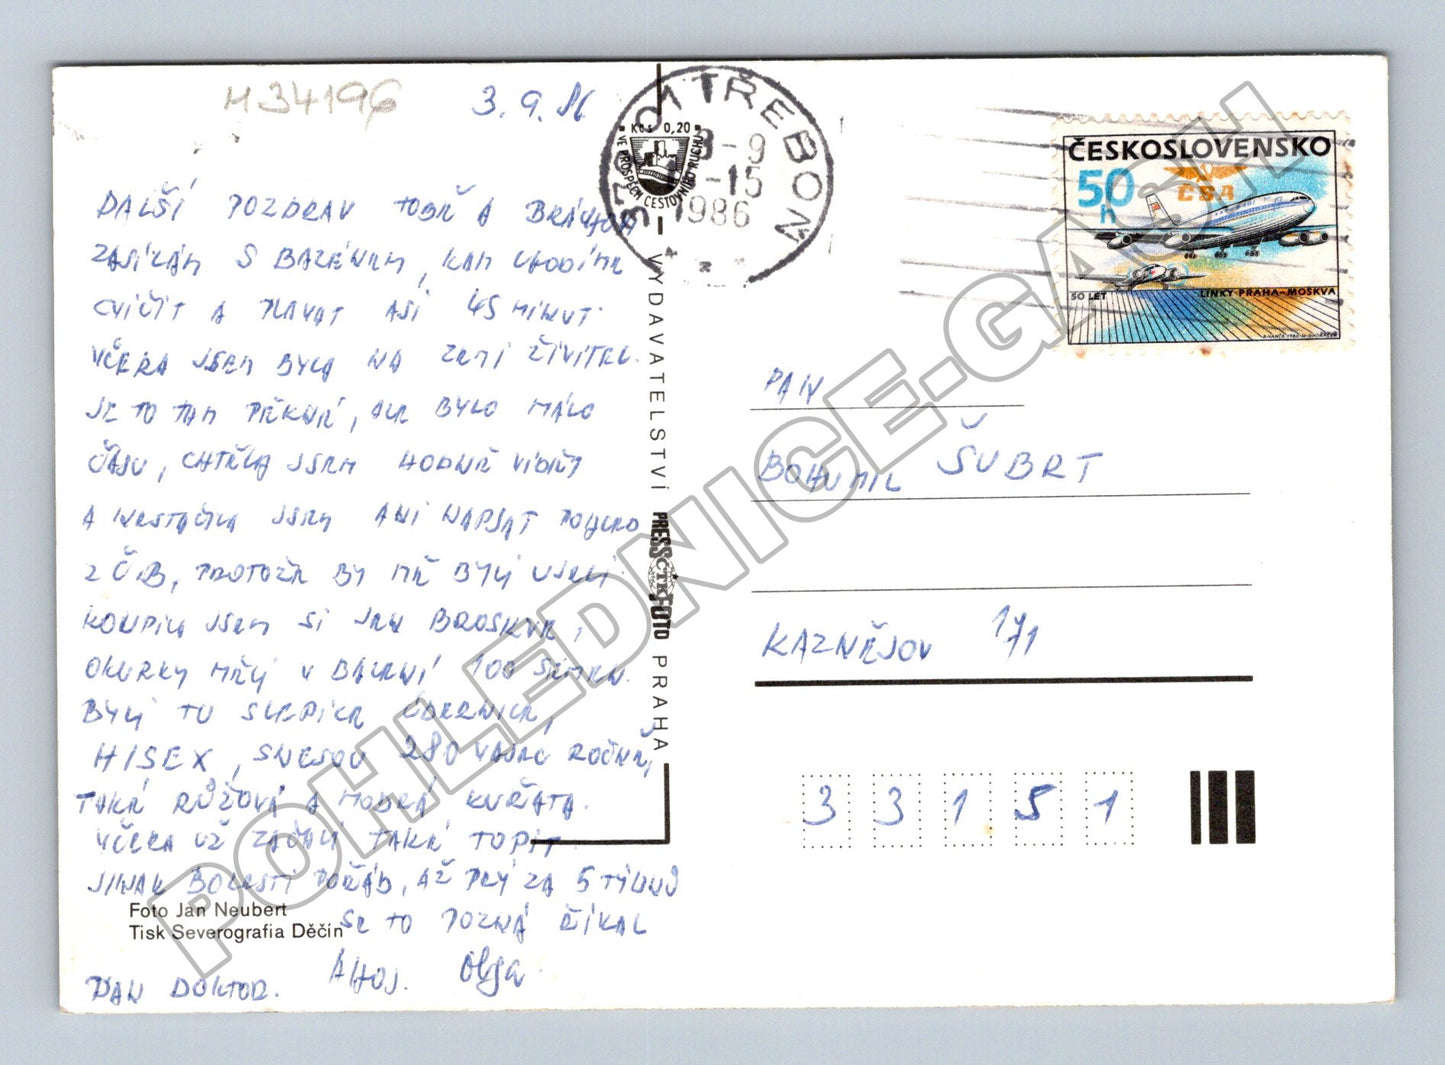 H34196
3.9.86
DALŠÍ POZDRAV TOBĚ A
ZASÍLÁM S BAZÉNEM, KAM CHODÍME
CVIČIT A PLAVAT ASI 45 MINUT.
VČERA JSEM BYLA NA ZEMI ŽIVITEL.
JE TO TAM PĚKNÉ, ALE BYLO MÁLO
ČASU, CHTĚLA JSEM HODNĚ VIDĚT
A NESTAČILA JSEM ANI NAPSAT POHLED
Z ČB, PROTOŽE BY MĚ BYLI UJELI.
KOUPILA JSEM SI JEN BROSKVE,
OKURKY MĚLI V BALENÍ 100 SEMEN.
BYLY TU SLEPICE
HISEX, SNESOU 280 VAJEC ROČNĚ,
TAKÉ RŮŽOVÁ A MODRÁ KUŘATA.
VČERA UŽ ZAČALI TAKÉ TOPIT.
JINAK BOLESTI POŘÁD, AŽ PRÝ ZA 5 TÝDNŮ
SE TO POZNÁ ŘÍKAL
PAN DOKTOR. AHOJ. Olga
Foto Jan Neubert
Tisk Severografia Děčín
VYDAVATELSTVÍ PRESSFOTO PRAHA
ČTK
Kčs 0,20
VE PROSPĚCH CESTOVNÍHO RUCHU
379 01 TŘEBOŇ
3-9
-15
1986
ČESKOSLOVENSKO
50 h
ČSA
50 LET LINKY PRAHA–MOSKVA
PAN
BOHUMIL ŠUBRT
KAZNĚJOV 171
331 51 1
POHLEDNICE-GASH